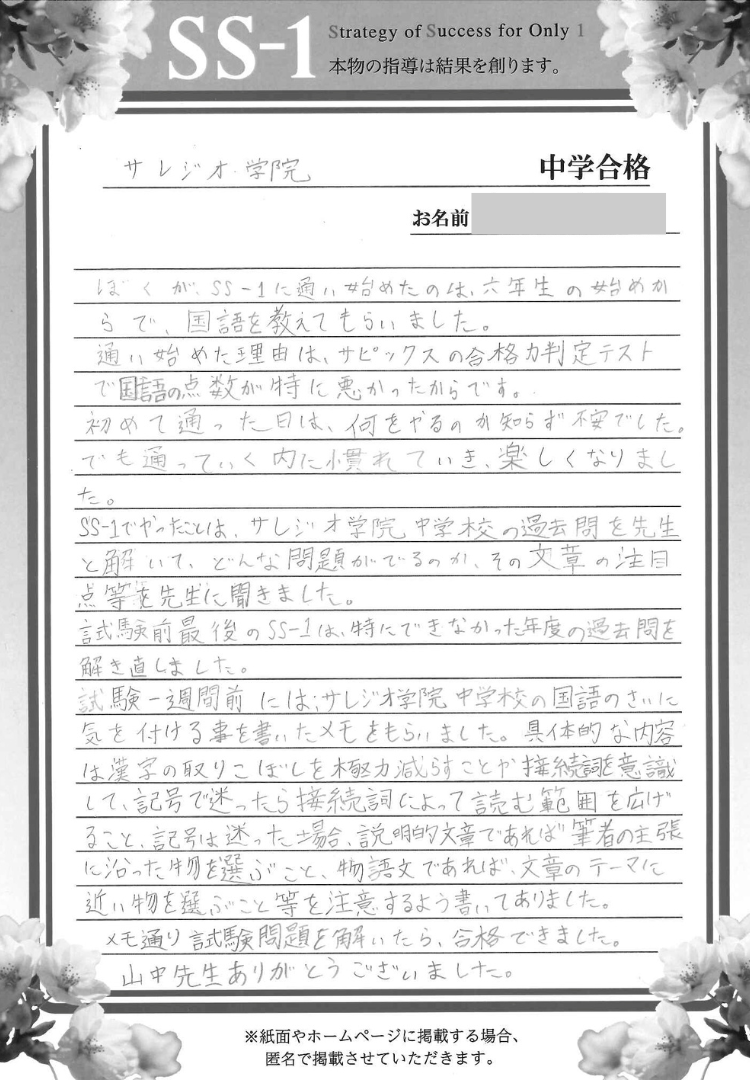 SS-1 Strategy of Success for Only 1
本物の指導は結果を創ります。
サレジオ学院 中学合格
お名前
ぼくが、SS-1に通い始めたのは、六年生の始めか
らで、国語を教えてもらいました。
通い始めた理由は、サピックスの合格力判定テスト
で国語の点数が特に悪かったからです。
初めて通った日は、何をやるのか知らず不安でした。
でも通っていく内に慣れていき、楽しくなりまし
た。
SS-1でやったことは、サレジオ学院中学校の過去問を先生
と解いて、どんな問題がでるのか、その文章の注目
点等を先生に聞きました。
試験前最後のSS-1は、特にできなかった年度の過去問を
解き直しました。
試験一週間前には、サレジオ学院中学校の国語のさいに
気を付ける事を書いたメモをもらいました。具体的な内容
は漢字の取りこぼしを極力減らすことや接続詞を意識
して、記号で迷ったら接続詞によって読む範囲を広げ
ること、記号は迷った場合、説明的文章であれば筆者の主張
に沿った物を選ぶこと、物語文であれば、文章のテーマに
近い物を選ぶこと等を注意するよう書いてありました。
メモ通り試験問題を解いたら、合格できました。
山中先生ありがとうございました。
※紙面やホームページに掲載する場合、
匿名で掲載させていただきます。